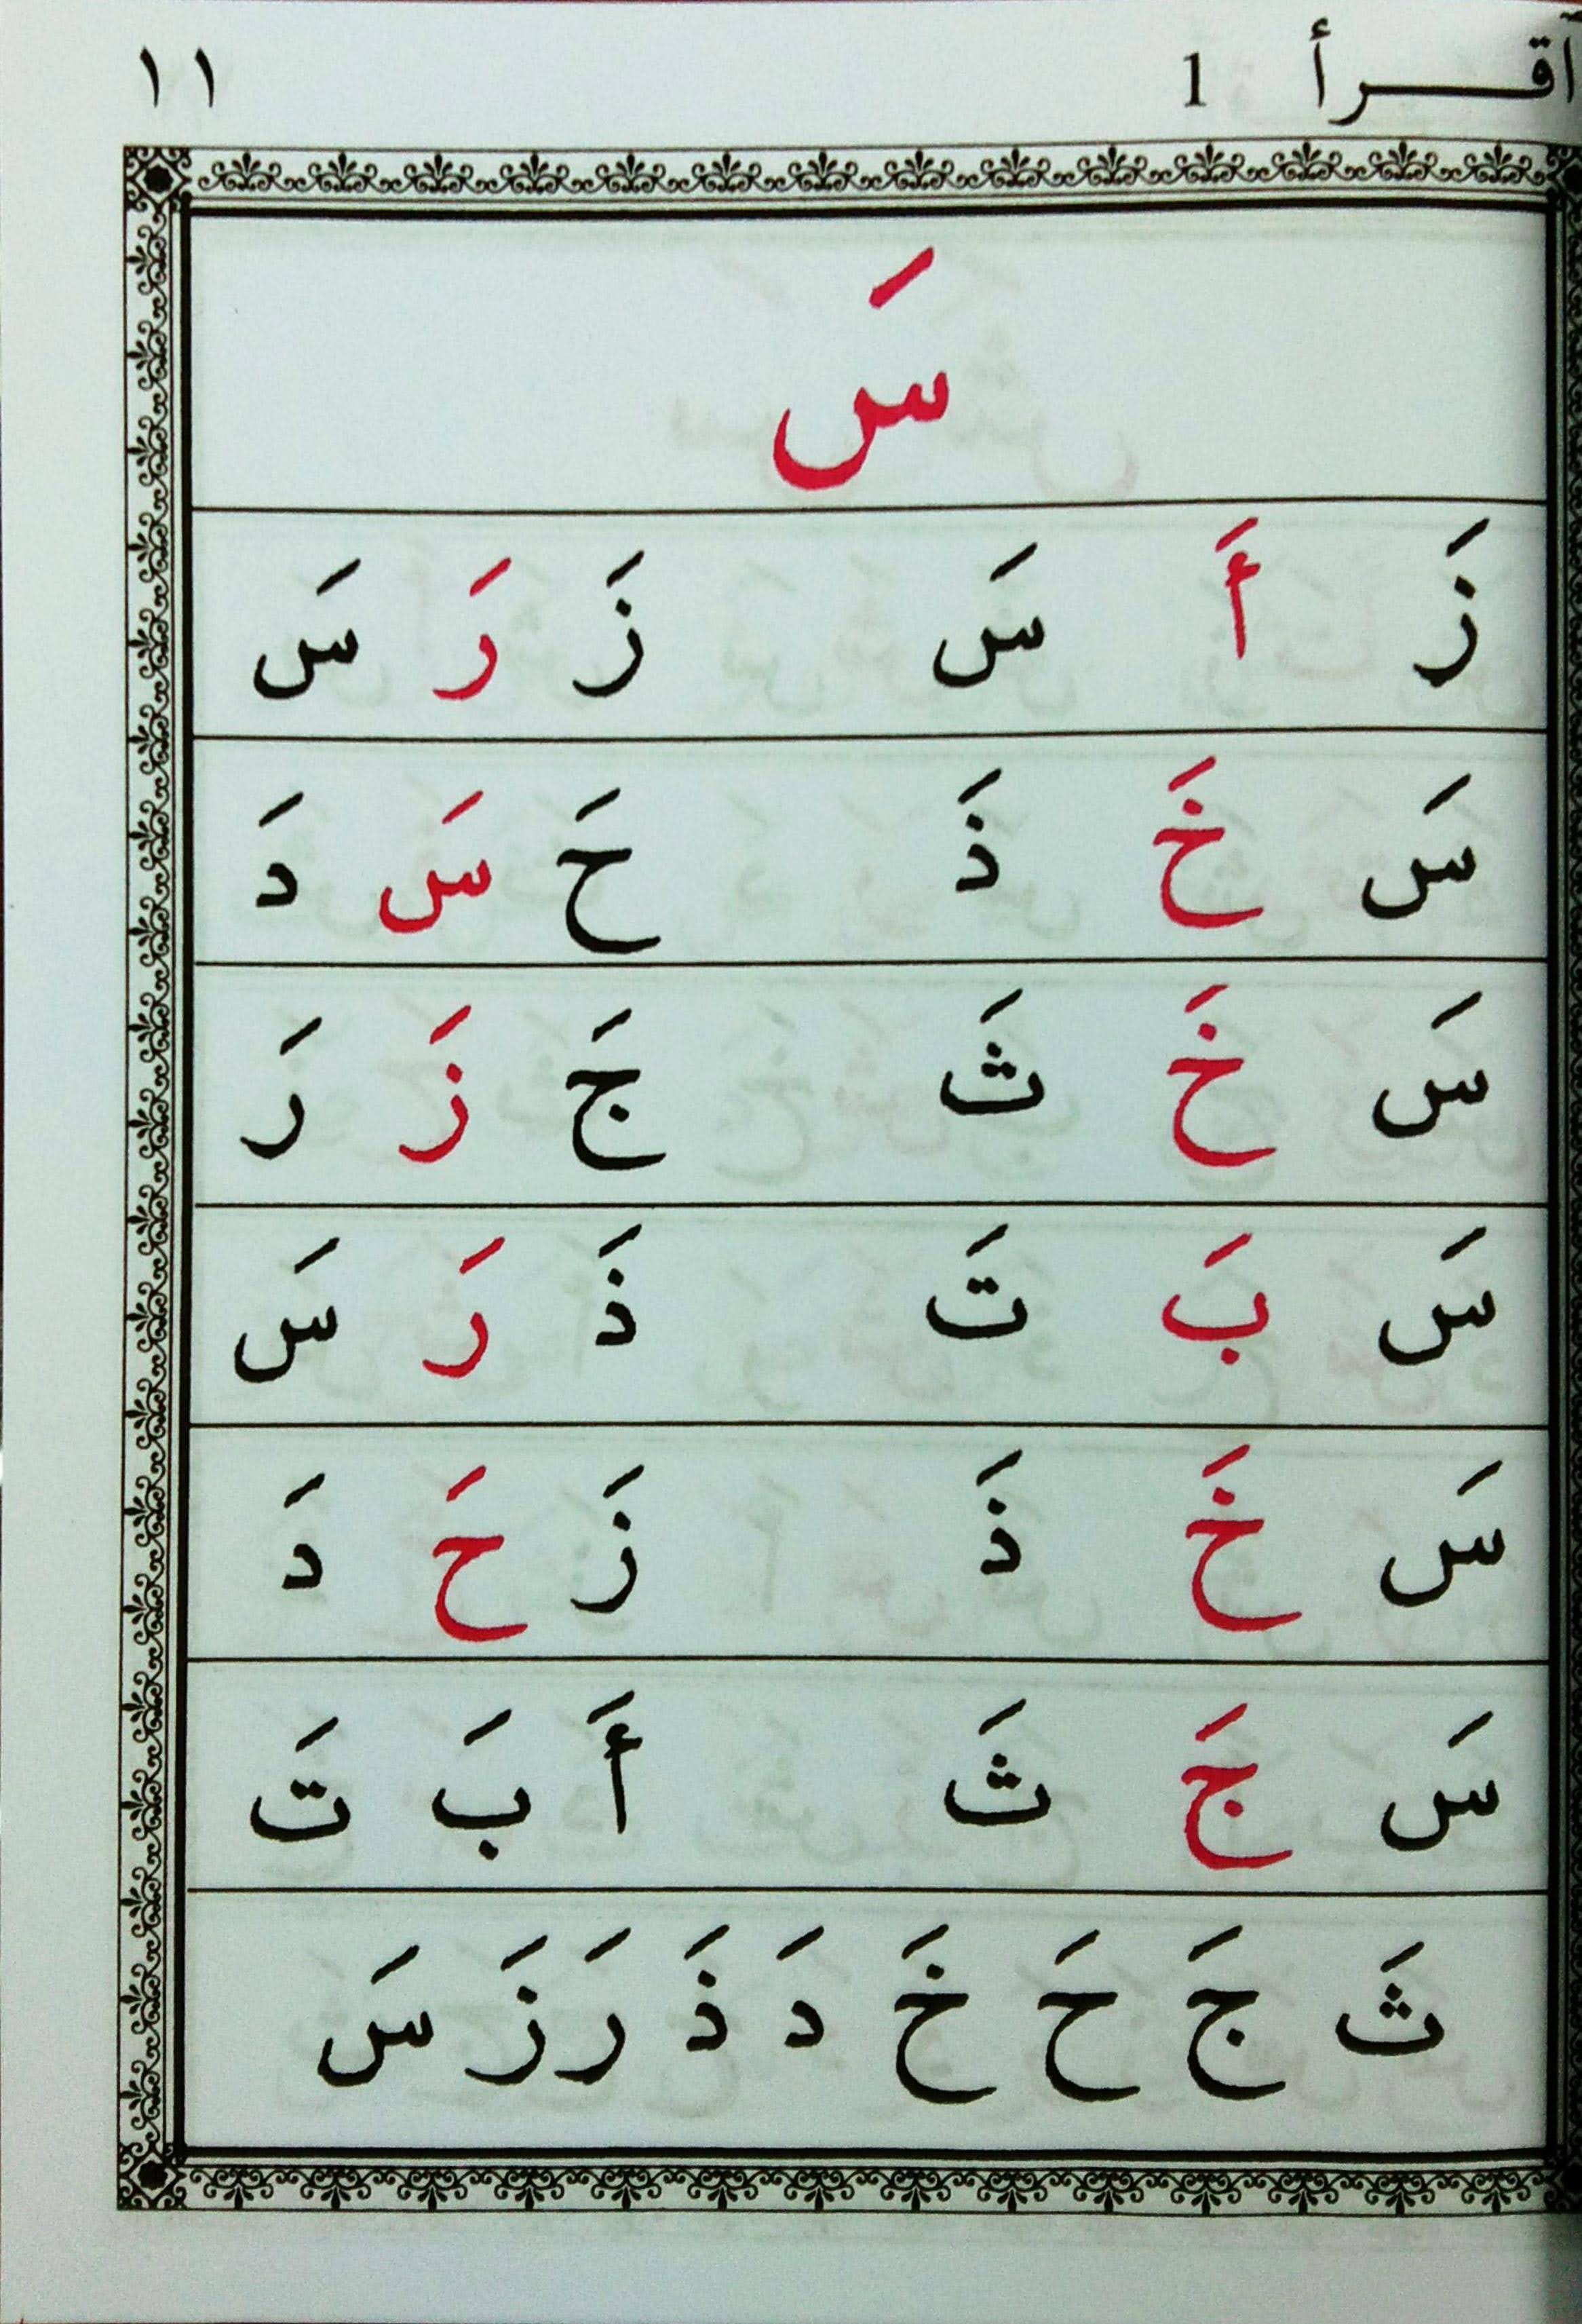 ٱقـــرأ 1 ١١
سَ
زَ أَ سَ زَ رَ سَ
سَ خَ ذَ حَ سَ دَ
سَ خَ ثَ جَ زَ رَ
سَ بَ تَ ذَ رَ سَ
سَ خَ ذَ زَ حَ دَ
سَ جَ ثَ أَ بَ تَ
ثَ جَ حَ خَ دَ ذَ رَ زَ سَ